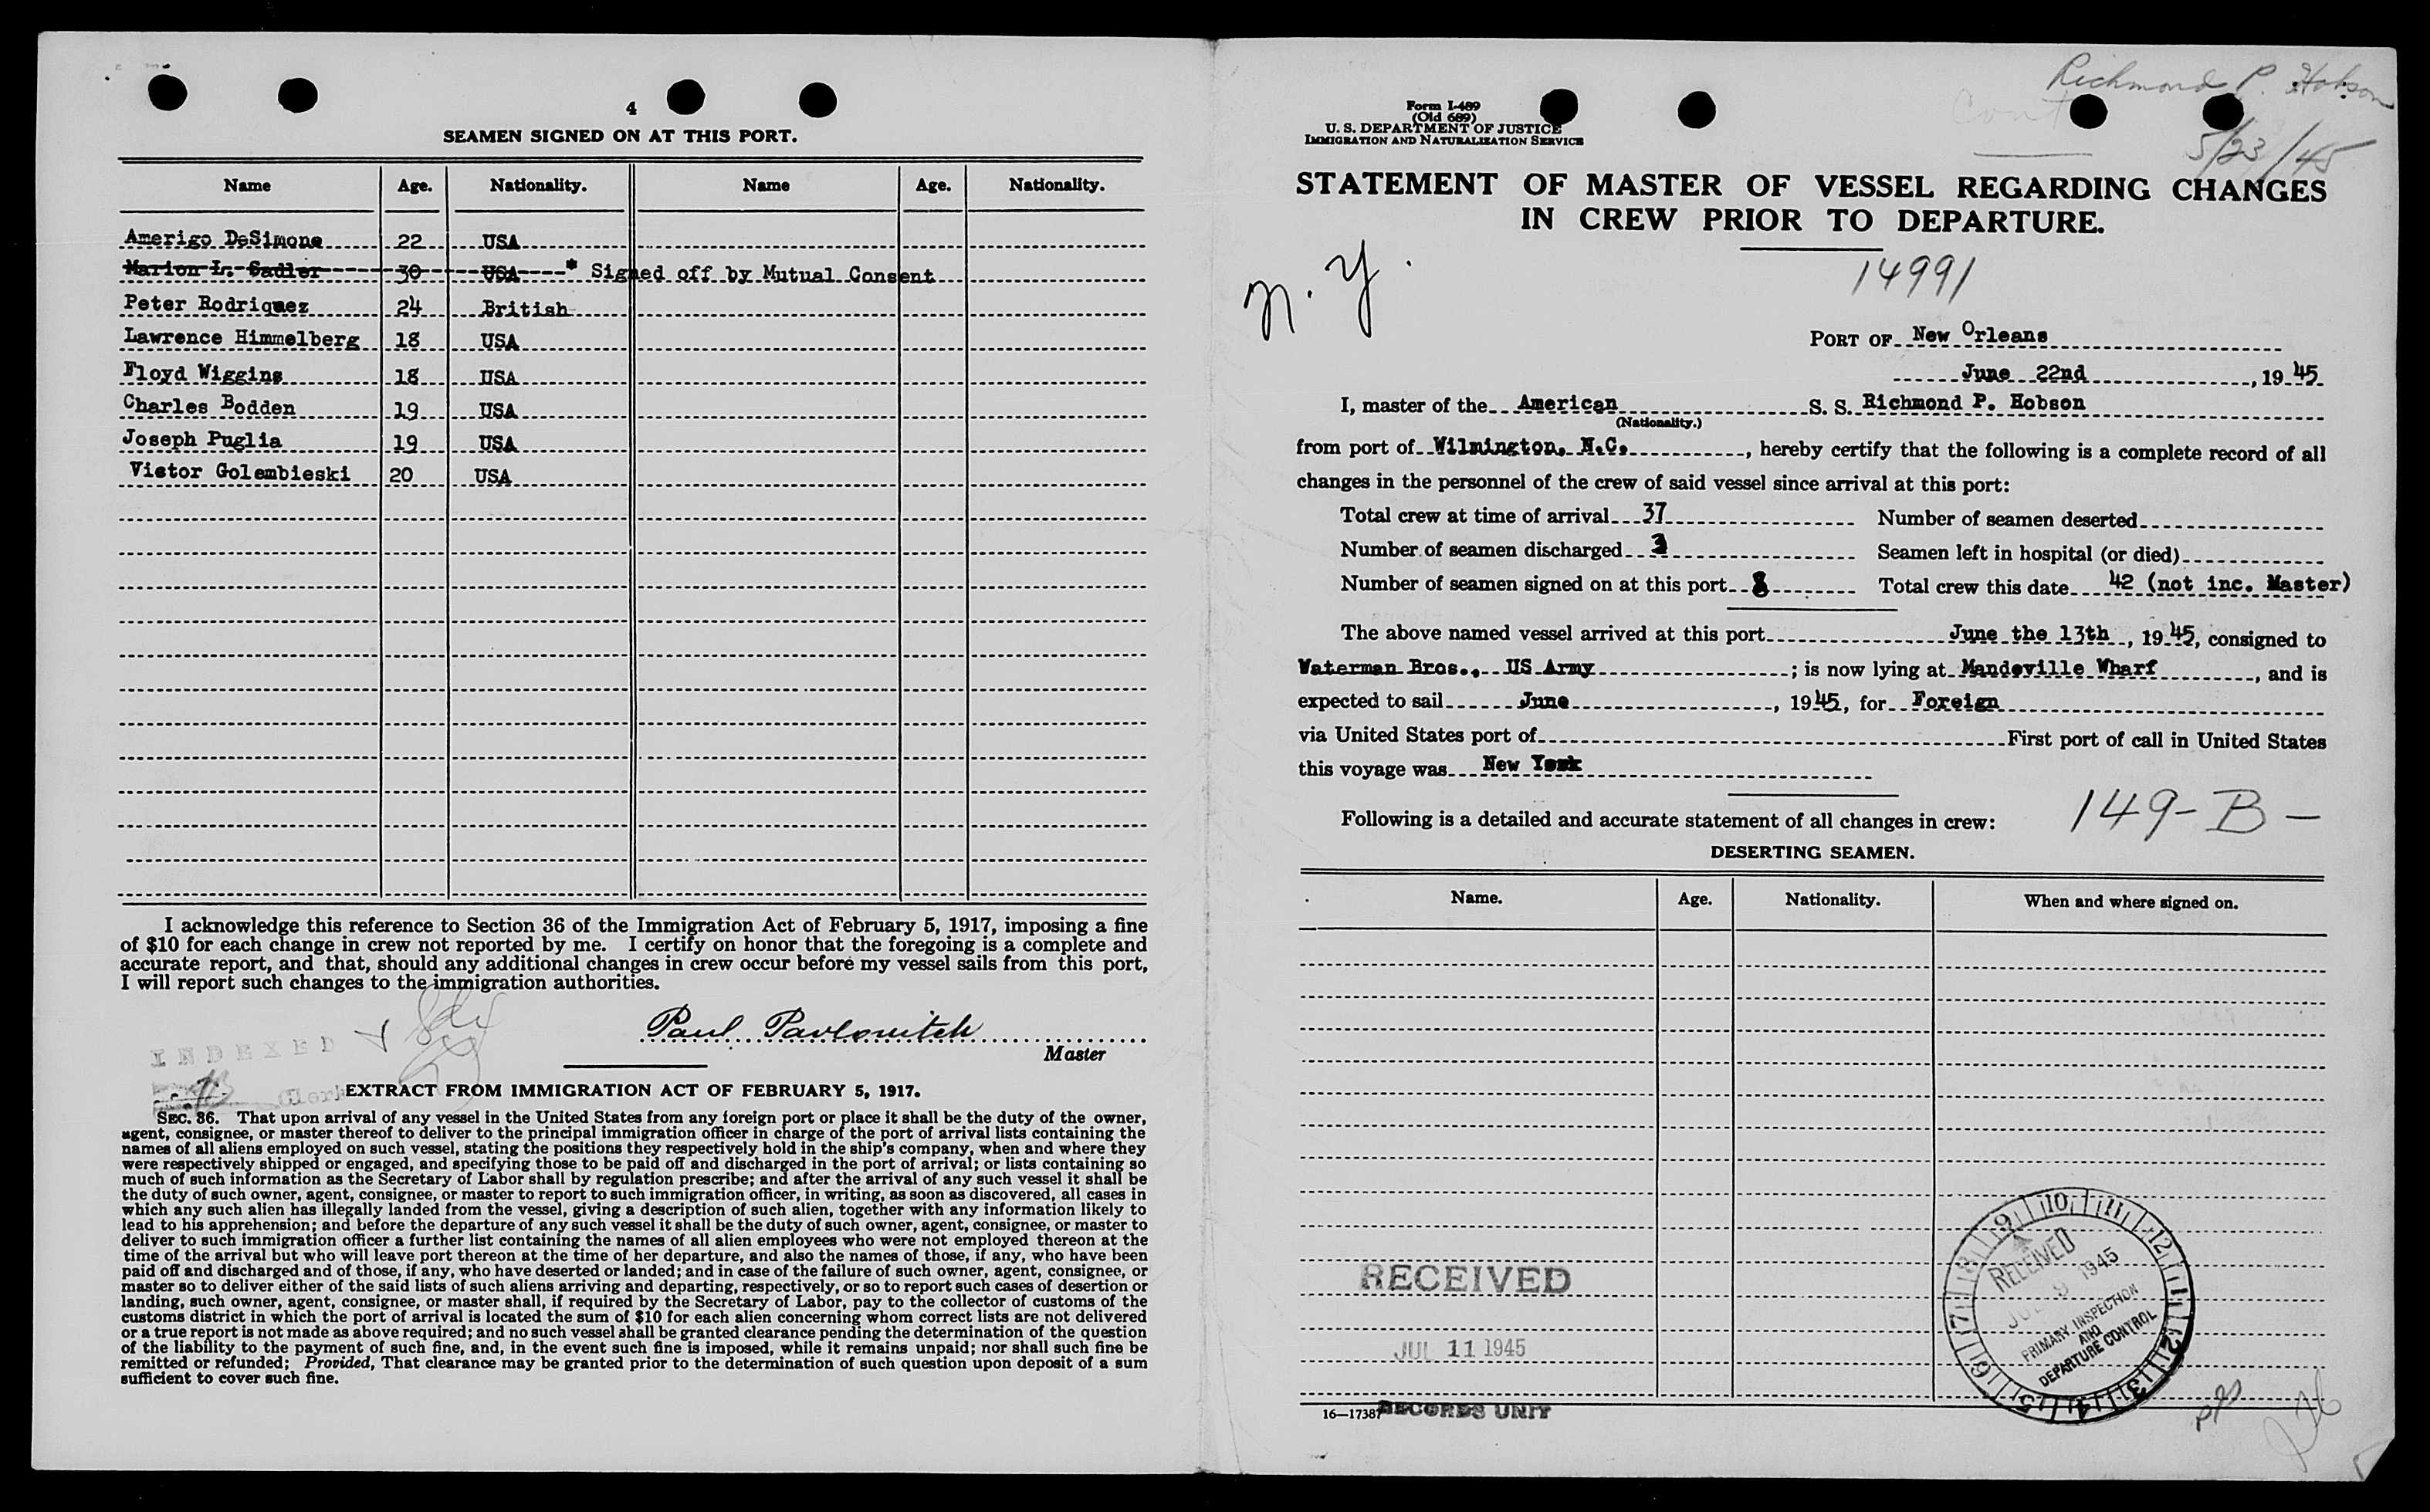 4
SEAMEN SIGNED ON AT THIS PORT.
Name Age. Nationality. Name Age. Nationality.
Amerigo DeSimone 22 USA
Marion L. Sadler 30 USA * Signed off by Mutual Consent
Peter Rodriquez 24 British
Lawrence Himmelberg 18 USA
Floyd Wiggins 18 USA
Charles Bodden 19 USA
Joseph Puglia 19 USA
Victor Golembieski 20 USA
I acknowledge this reference to Section 36 of the Immigration Act of February 5, 1917, imposing a fine
of $10 for each change in crew not reported by me. I certify on honor that the foregoing is a complete and
accurate report, and that, should any additional changes in crew occur before my vessel sails from this port,
I will report such changes to the immigration authorities.
Paul Pavlovitch
Master
INDEXED
Clerk
EXTRACT FROM IMMIGRATION ACT OF FEBRUARY 5, 1917.
SEC. 36. That upon arrival of any vessel in the United States from any foreign port or place it shall be the duty of the owner,
agent, consignee, or master thereof to deliver to the principal immigration officer in charge of the port of arrival lists containing the
names of all aliens employed on such vessel, stating the positions they respectively hold in the ship's company, when and where they
were respectively shipped or engaged, and specifying those to be paid off and discharged in the port of arrival; or lists containing so
much of such information as the Secretary of Labor shall by regulation prescribe; and after the arrival of any such vessel it shall be
the duty of such owner, agent, consignee, or master to report to such immigration officer, in writing, as soon as discovered, all cases in
which any such alien has illegally landed from the vessel, giving a description of such alien, together with any information likely to
lead to his apprehension; and before the departure of any such vessel it shall be the duty of such owner, agent, consignee, or master to
deliver to such immigration officer a further list containing the names of all alien employees who were not employed thereon at the
time of the arrival but who will leave port thereon at the time of her departure, and also the names of those, if any, who have been
paid off and discharged and of those, if any, who have deserted or landed; and in case of the failure of such owner, agent, consignee, or
master so to deliver either of the said lists of such aliens arriving and departing, respectively, or so to report such cases of desertion or
landing, such owner, agent, consignee, or master shall, if required by the Secretary of Labor, pay to the collector of customs of the
customs district in which the port of arrival is located the sum of $10 for each alien concerning whom correct lists are not delivered
or a true report is not made as above required; and no such vessel shall be granted clearance pending the determination of the question
of the liability to the payment of such fine, and, in the event such fine is imposed, while it remains unpaid; nor shall such fine be
remitted or refunded; Provided, That clearance may be granted prior to the determination of such question upon deposit of a sum
sufficient to cover such fine.
Richmond P. Hobson
Cont
5/23/45
Form I-489
(Old 689)
U. S. DEPARTMENT OF JUSTICE
IMMIGRATION AND NATURALIZATION SERVICE
STATEMENT OF MASTER OF VESSEL REGARDING CHANGES
IN CREW PRIOR TO DEPARTURE.
N. Y.
14991
PORT OF New Orleans
June 22nd, 1945
I, master of the American S. S. Richmond P. Hobson
(Nationality.)
from port of Wilmington, N.C., hereby certify that the following is a complete record of all
changes in the personnel of the crew of said vessel since arrival at this port:
Total crew at time of arrival 37 Number of seamen deserted
Number of seamen discharged 3 Seamen left in hospital (or died)
Number of seamen signed on at this port 8 Total crew this date 42 (not inc. Master)
The above named vessel arrived at this port June the 13th, 1945, consigned to
Waterman Bros., US Army; is now lying at Mandeville Wharf, and is
expected to sail June, 1945, for Foreign
via United States port of First port of call in United States
this voyage was New York
Following is a detailed and accurate statement of all changes in crew:
149-B-
DESERTING SEAMEN.
Name. Age. Nationality. When and where signed on.
RECEIVED
JUL 11 1945
RECORDS UNIT
16—17387
9 10 11 12 1 2 3 4 5 6 7 8
RECEIVED
JUL 9 1945
PRIMARY INSPECTION
AND
DEPARTURE CONTROL